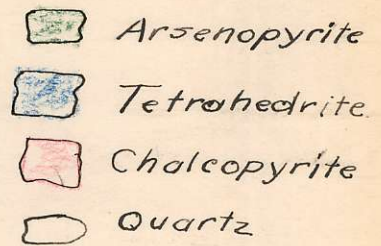 Arsenopyrite
Tetrahedrite.
Chalcopyrite
Quartz